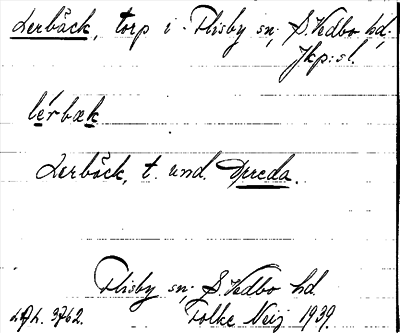 Lerbäck, torp i Flisby sn, S. Vedbo hd,
Jkp:s l.
lérbæk
Lerbäck, t. und.
Flisby sn, S. Vedbo hd.
Folke Neij 1939.